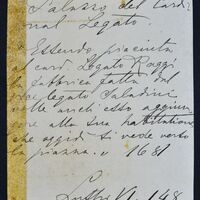 Palazzo del Cardi-
nal Legato.
Essendo piaciuta
al card. Legato Raggi
la fabbrica fatta dal
vicelegato Paladini
volle anch'esso aggiun-
gere alla sua habitatione
che oggidì si vede verso
la piazza. " 1681